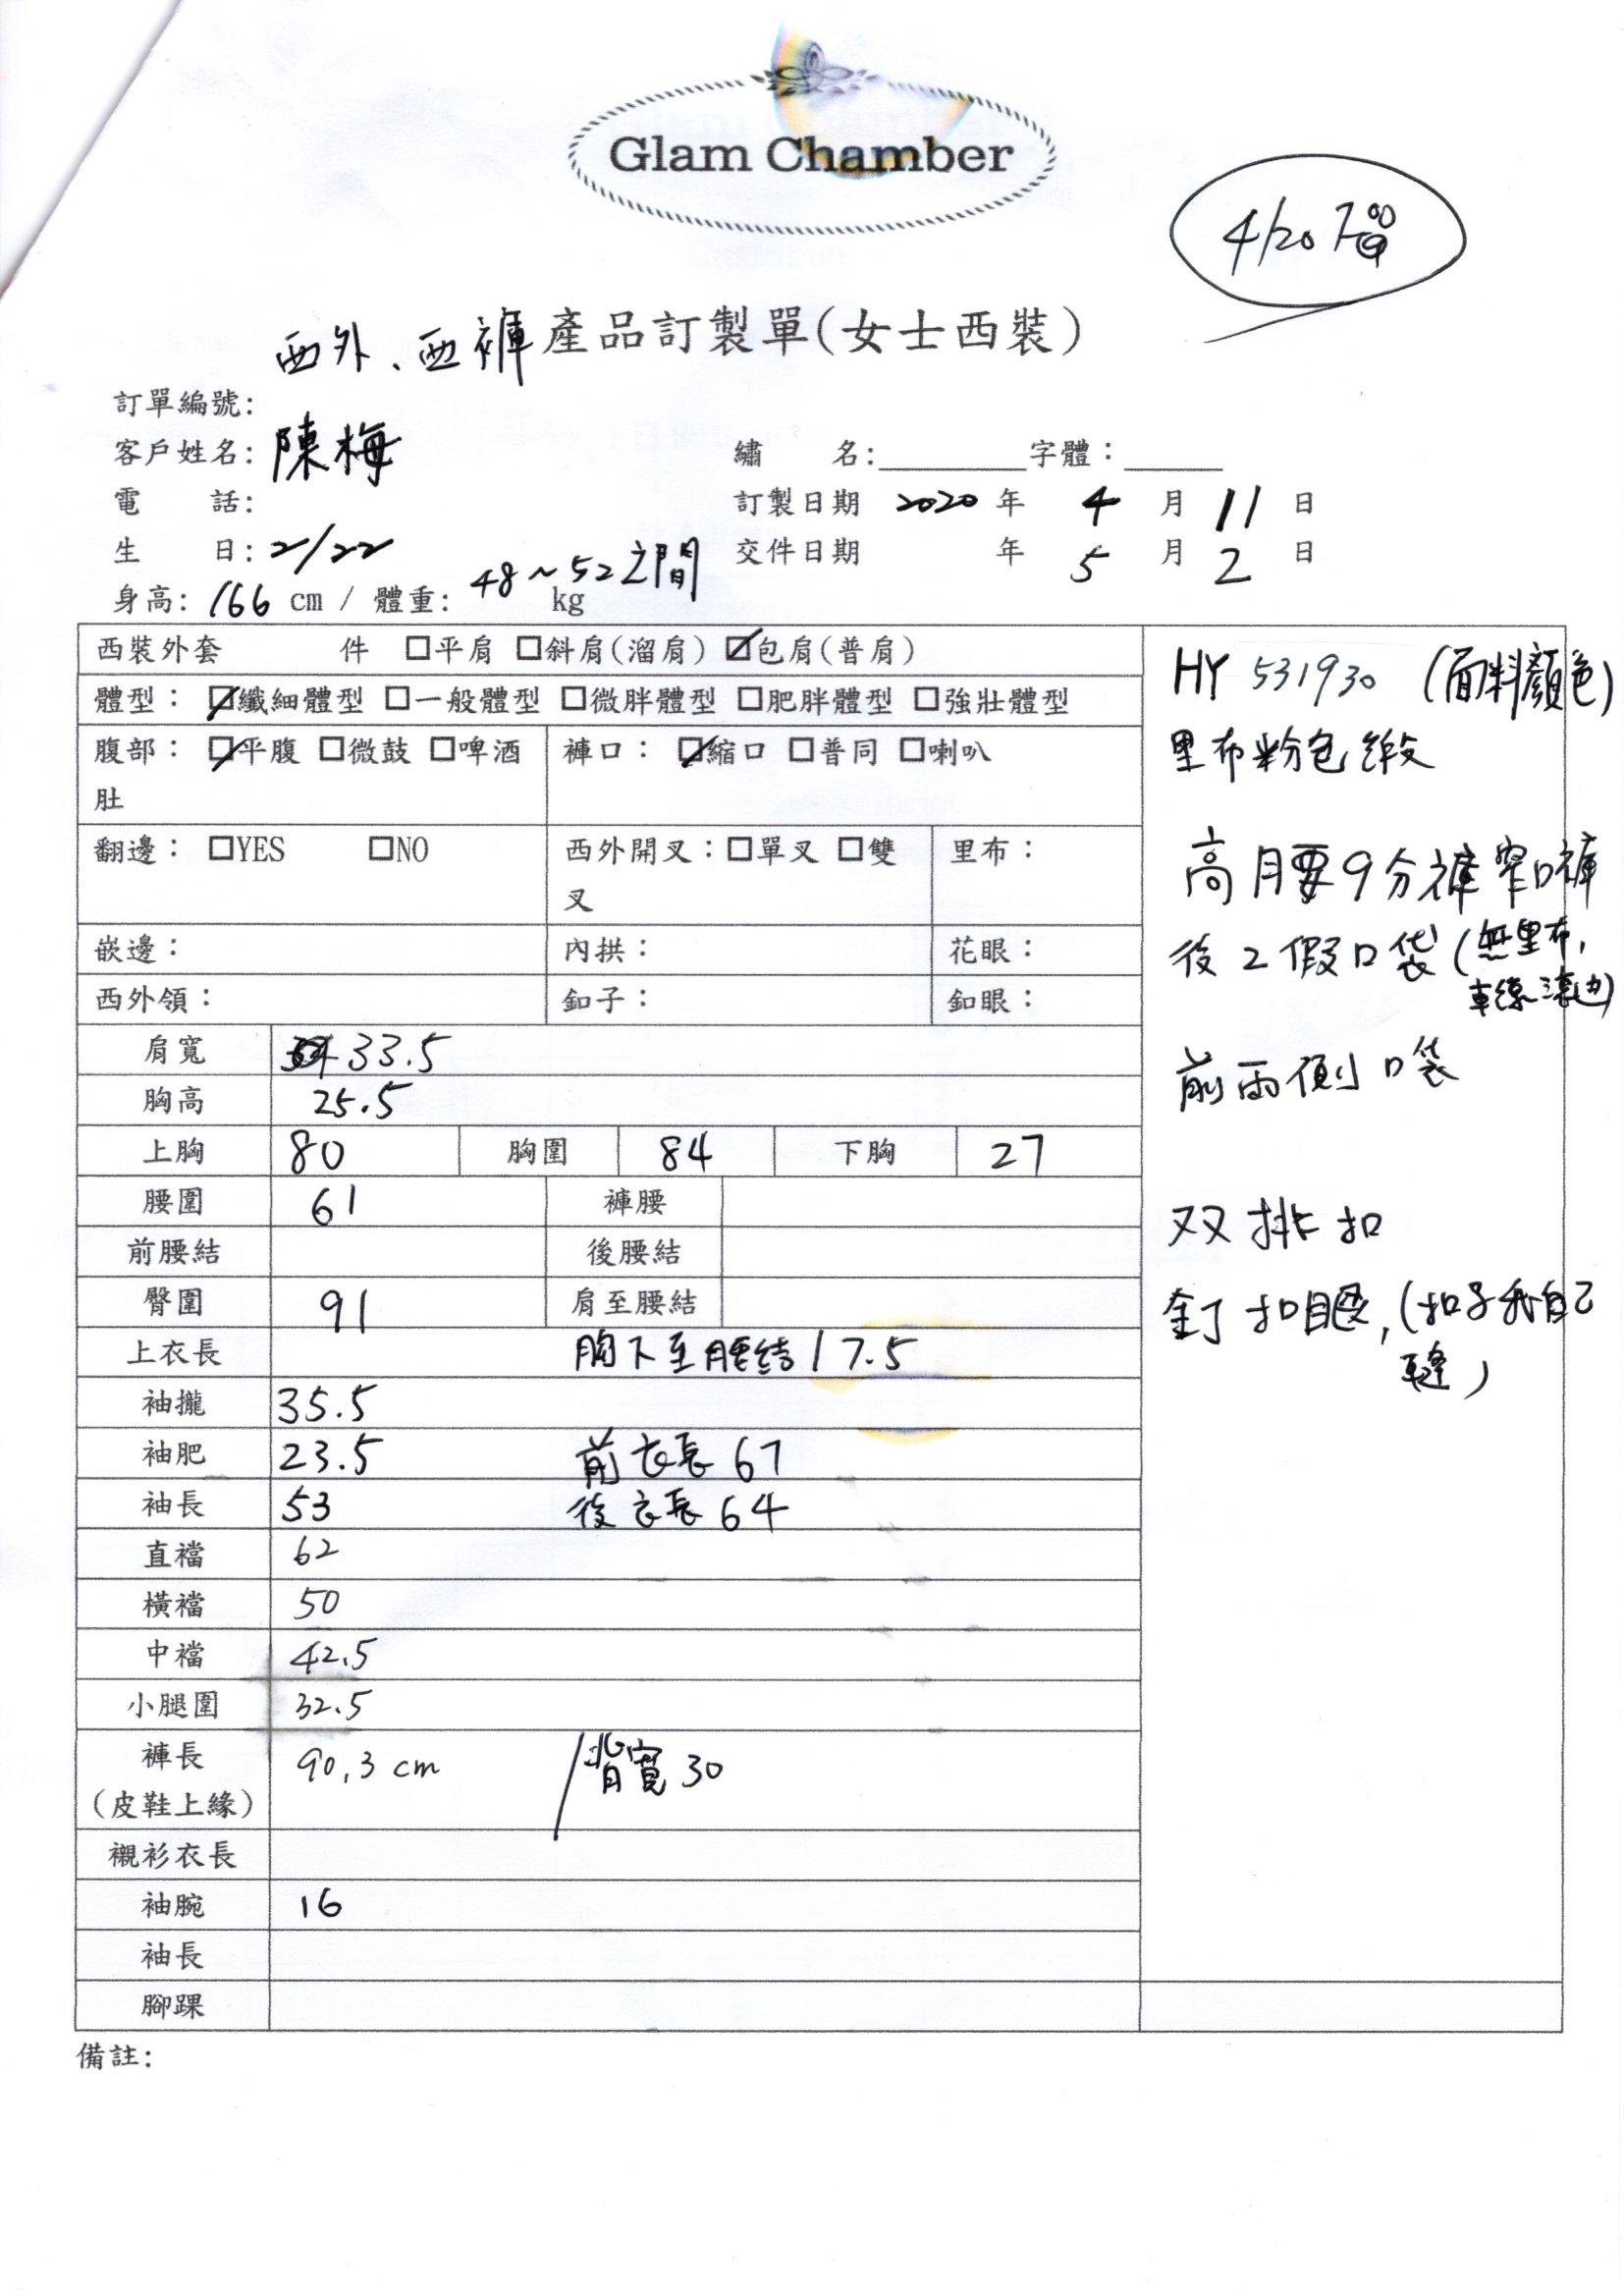 Glam Chamber
4/20
西外、西褲產品訂製單(女士西裝)
訂單編號:
客戶姓名: 陳梅
繡 名:________字體：_____
電 話:
訂製日期 2020 年 4 月 11 日
生 日: 2/22
交件日期 年 5 月 2 日
身高: 166 cm / 體重: 48~52之間 kg
西裝外套 件 □平肩 □斜肩(溜肩) ☑包肩(普肩)
體型： ☑纖細體型 □一般體型 □微胖體型 □肥胖體型 □強壯體型
腹部： ☑平腹 □微鼓 □啤酒肚
褲口： ☑縮口 □普同 □喇叭
翻邊： □YES □NO
西外開叉：□單叉 □雙叉
里布：
嵌邊：
內拱：
花眼：
西外領：
釦子：
釦眼：
肩寬 33.5
胸高 25.5
上胸 80 胸圍 84 下胸 27
腰圍 61 褲腰
前腰結 後腰結
臀圍 91 肩至腰結
上衣長 胸下至腰結17.5
袖攏 35.5
袖肥 23.5 前衣長 67
袖長 53 後衣長 64
直襠 62
橫襠 50
中襠 42.5
小腿圍 32.5
褲長 90.3 cm /背寬 30
(皮鞋上緣)
襯衫衣長
袖腕 16
袖長
腳踝
HY 531930 (面料顏色)
里布粉色緞
高腰9分褲窄口褲
後2假口袋(無里布,
車線滾邊)
前兩側口袋
双排扣
釘扣眼,(扣子我自己
縫)
備註: